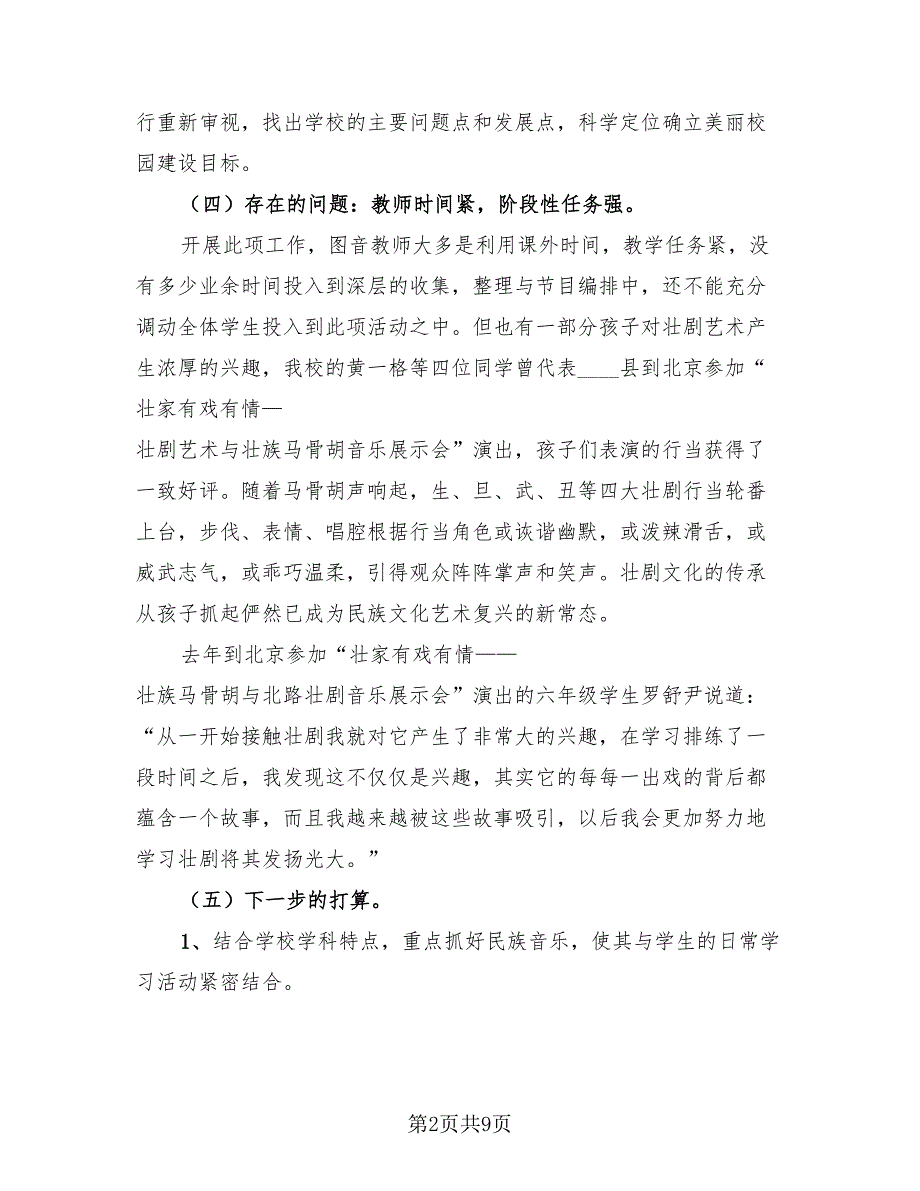 行重新审视，找出学校的主要问题点和发展点，科学定位确立美丽校
园建设目标。
（四）存在的问题：教师时间紧，阶段性任务强。
开展此项工作，图音教师大多是利用课外时间，教学任务紧，没
有多少业余时间投入到深层的收集，整理与节目编排中，还不能充分
调动全体学生投入到此项活动之中。但也有一部分孩子对壮剧艺术产
生浓厚的兴趣，我校的黄一格等四位同学曾代表____县到北京参加“
壮家有戏有情—
壮剧艺术与壮族马骨胡音乐展示会”演出，孩子们表演的行当获得了
一致好评。随着马骨胡声响起，生、旦、武、丑等四大壮剧行当轮番
上台，步伐、表情、唱腔根据行当角色或诙谐幽默，或泼辣滑舌，或
威武志气，或乖巧温柔，引得观众阵阵掌声和笑声。壮剧文化的传承
从孩子抓起俨然已成为民族文化艺术复兴的新常态。
去年到北京参加“壮家有戏有情——
壮族马骨胡与北路壮剧音乐展示会”演出的六年级学生罗舒尹说道：
“从一开始接触壮剧我就对它产生了非常大的兴趣，在学习排练了一
段时间之后，我发现这不仅仅是兴趣，其实它的每每一出戏的背后都
蕴含一个故事，而且我越来越被这些故事吸引，以后我会更加努力地
学习壮剧将其发扬光大。”
（五）下一步的打算。
1、结合学校学科特点，重点抓好民族音乐，使其与学生的日常学
习活动紧密结合。
第2页共9页